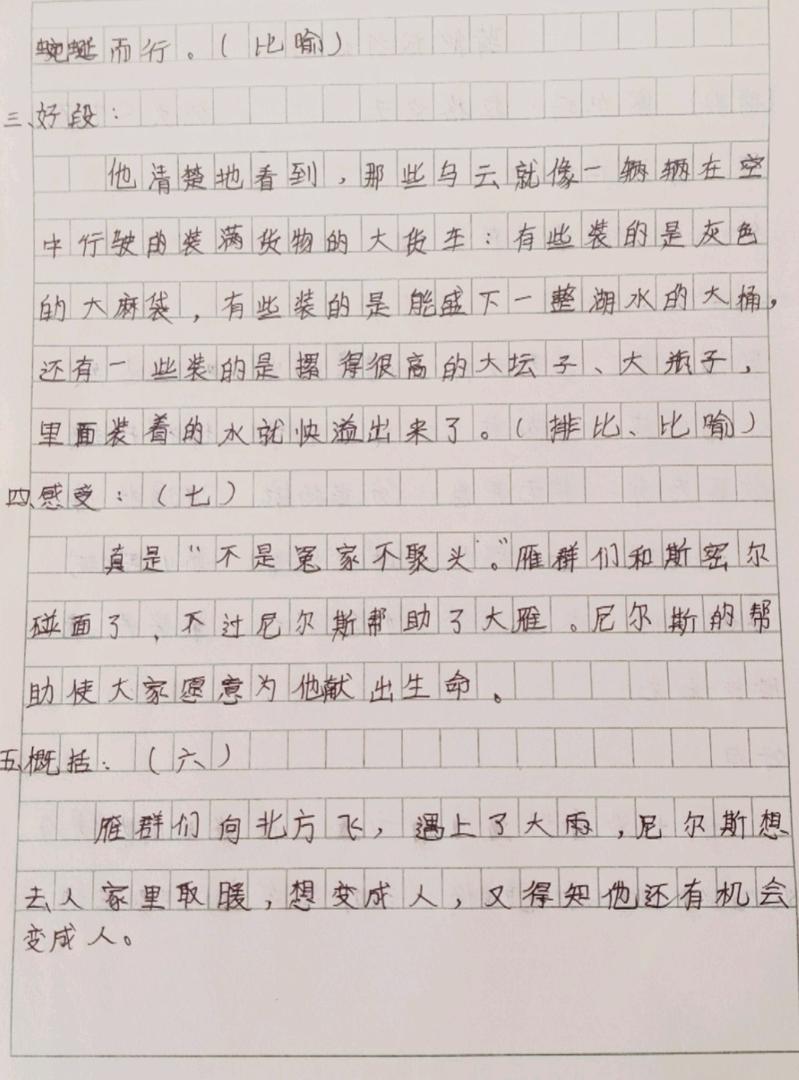 蜿蜒而行。(比喻)
三、好段:
他清楚地看到,那些乌云就像一辆辆在空
中行驶的装满货物的大货车:有些装的是灰色
的大麻袋,有些装的是能盛下一整湖水的大桶,
还有一些装的是摞得很高的大坛子、大瓶子,
里面装着的水就快溢出来了。(排比、比喻)
四、感受:(七)
真是“不是冤家不聚头”。雁群们和斯密尔
碰面了,不过尼尔斯帮助了大雁。尼尔斯的帮
助使大家愿意为他献出生命。
五、概括:(六)
雁群们向北方飞,遇上了大雨,尼尔斯想
去人家里取暖,想变成人,又得知他还有机会
变成人。